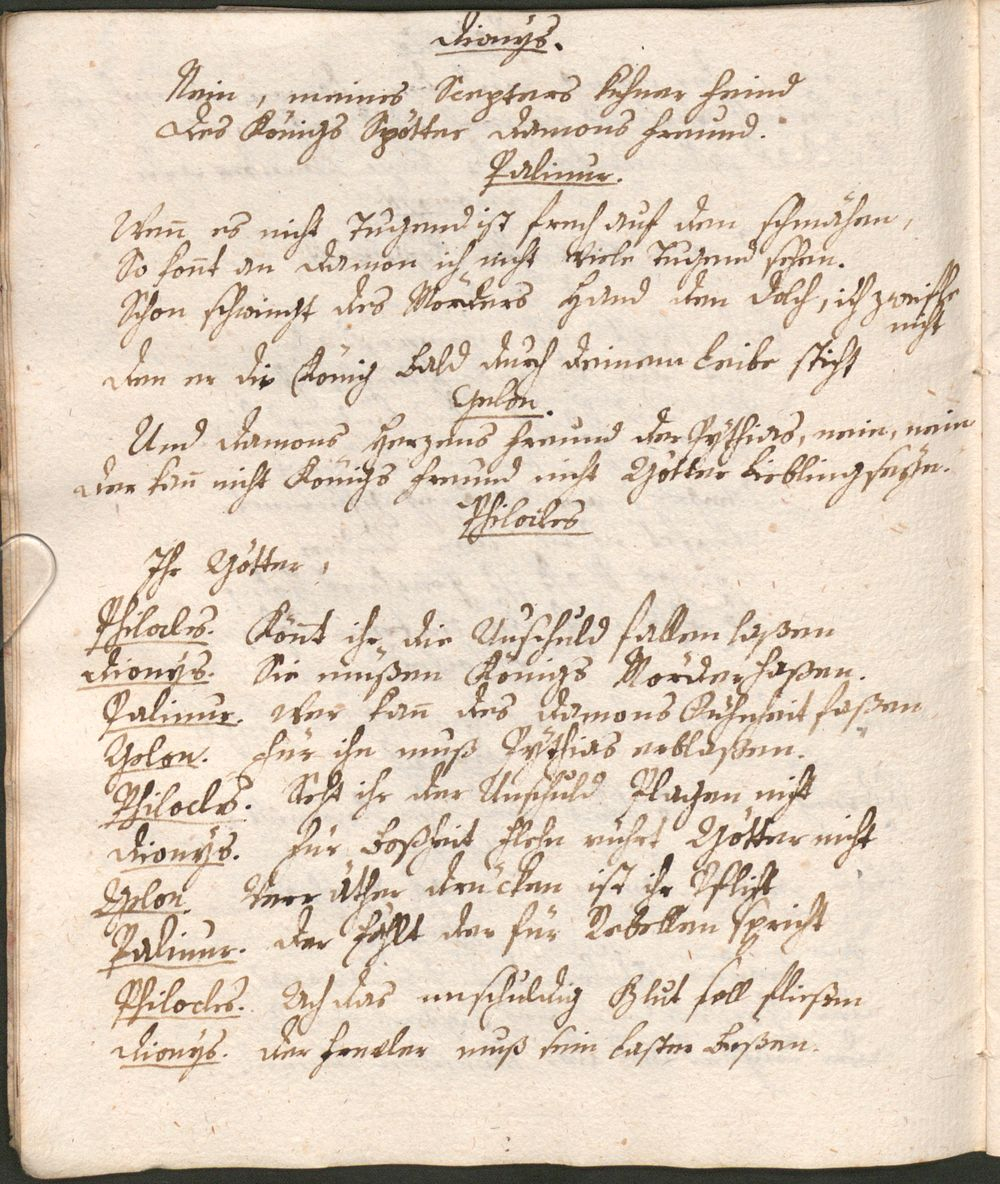 Dionys.
Nein, meines Scepters kühner Feind
Des Königs Spötter Damons Freund.
Palinur.
Wen̄ es nicht Tugend ist frech auf den schmähen,
So kon̄t an Damon ich nicht viele Tugend sehen.
Schon schwingt des Mörders Hand den Dolch, ich zweifle
nicht
den er die König bald durch deinem Leibe sticht
Gelon.
Und Damons Herzens Freund der Pythias, nein, nein
der kan̄ nicht Königs Freund nicht Götter Liebling seyn.
Philocles
Ihr Götter,
Philocles. Kön̄t ihr die Unschuld fallen laßen
Dionys. Sie müßen Königs Mörder haßen.
Palinur. Wer kan̄ des Damons Kühnheit faßen
Gelon. Für ihn muß Pythias erblaßen.
Philocles. Seht ihr der Unschuld Plagen nicht
Dionys. Für Boßheit flehn rührt Götter nicht
Gelon. Verräther drücken ist ihr Pflicht
Palinur. Der fehlt der für Rebellen spricht
Philocles. Ach das unschuldig Blut soll fließen
Dionys. Der Frevler muß sein Laster büßen.